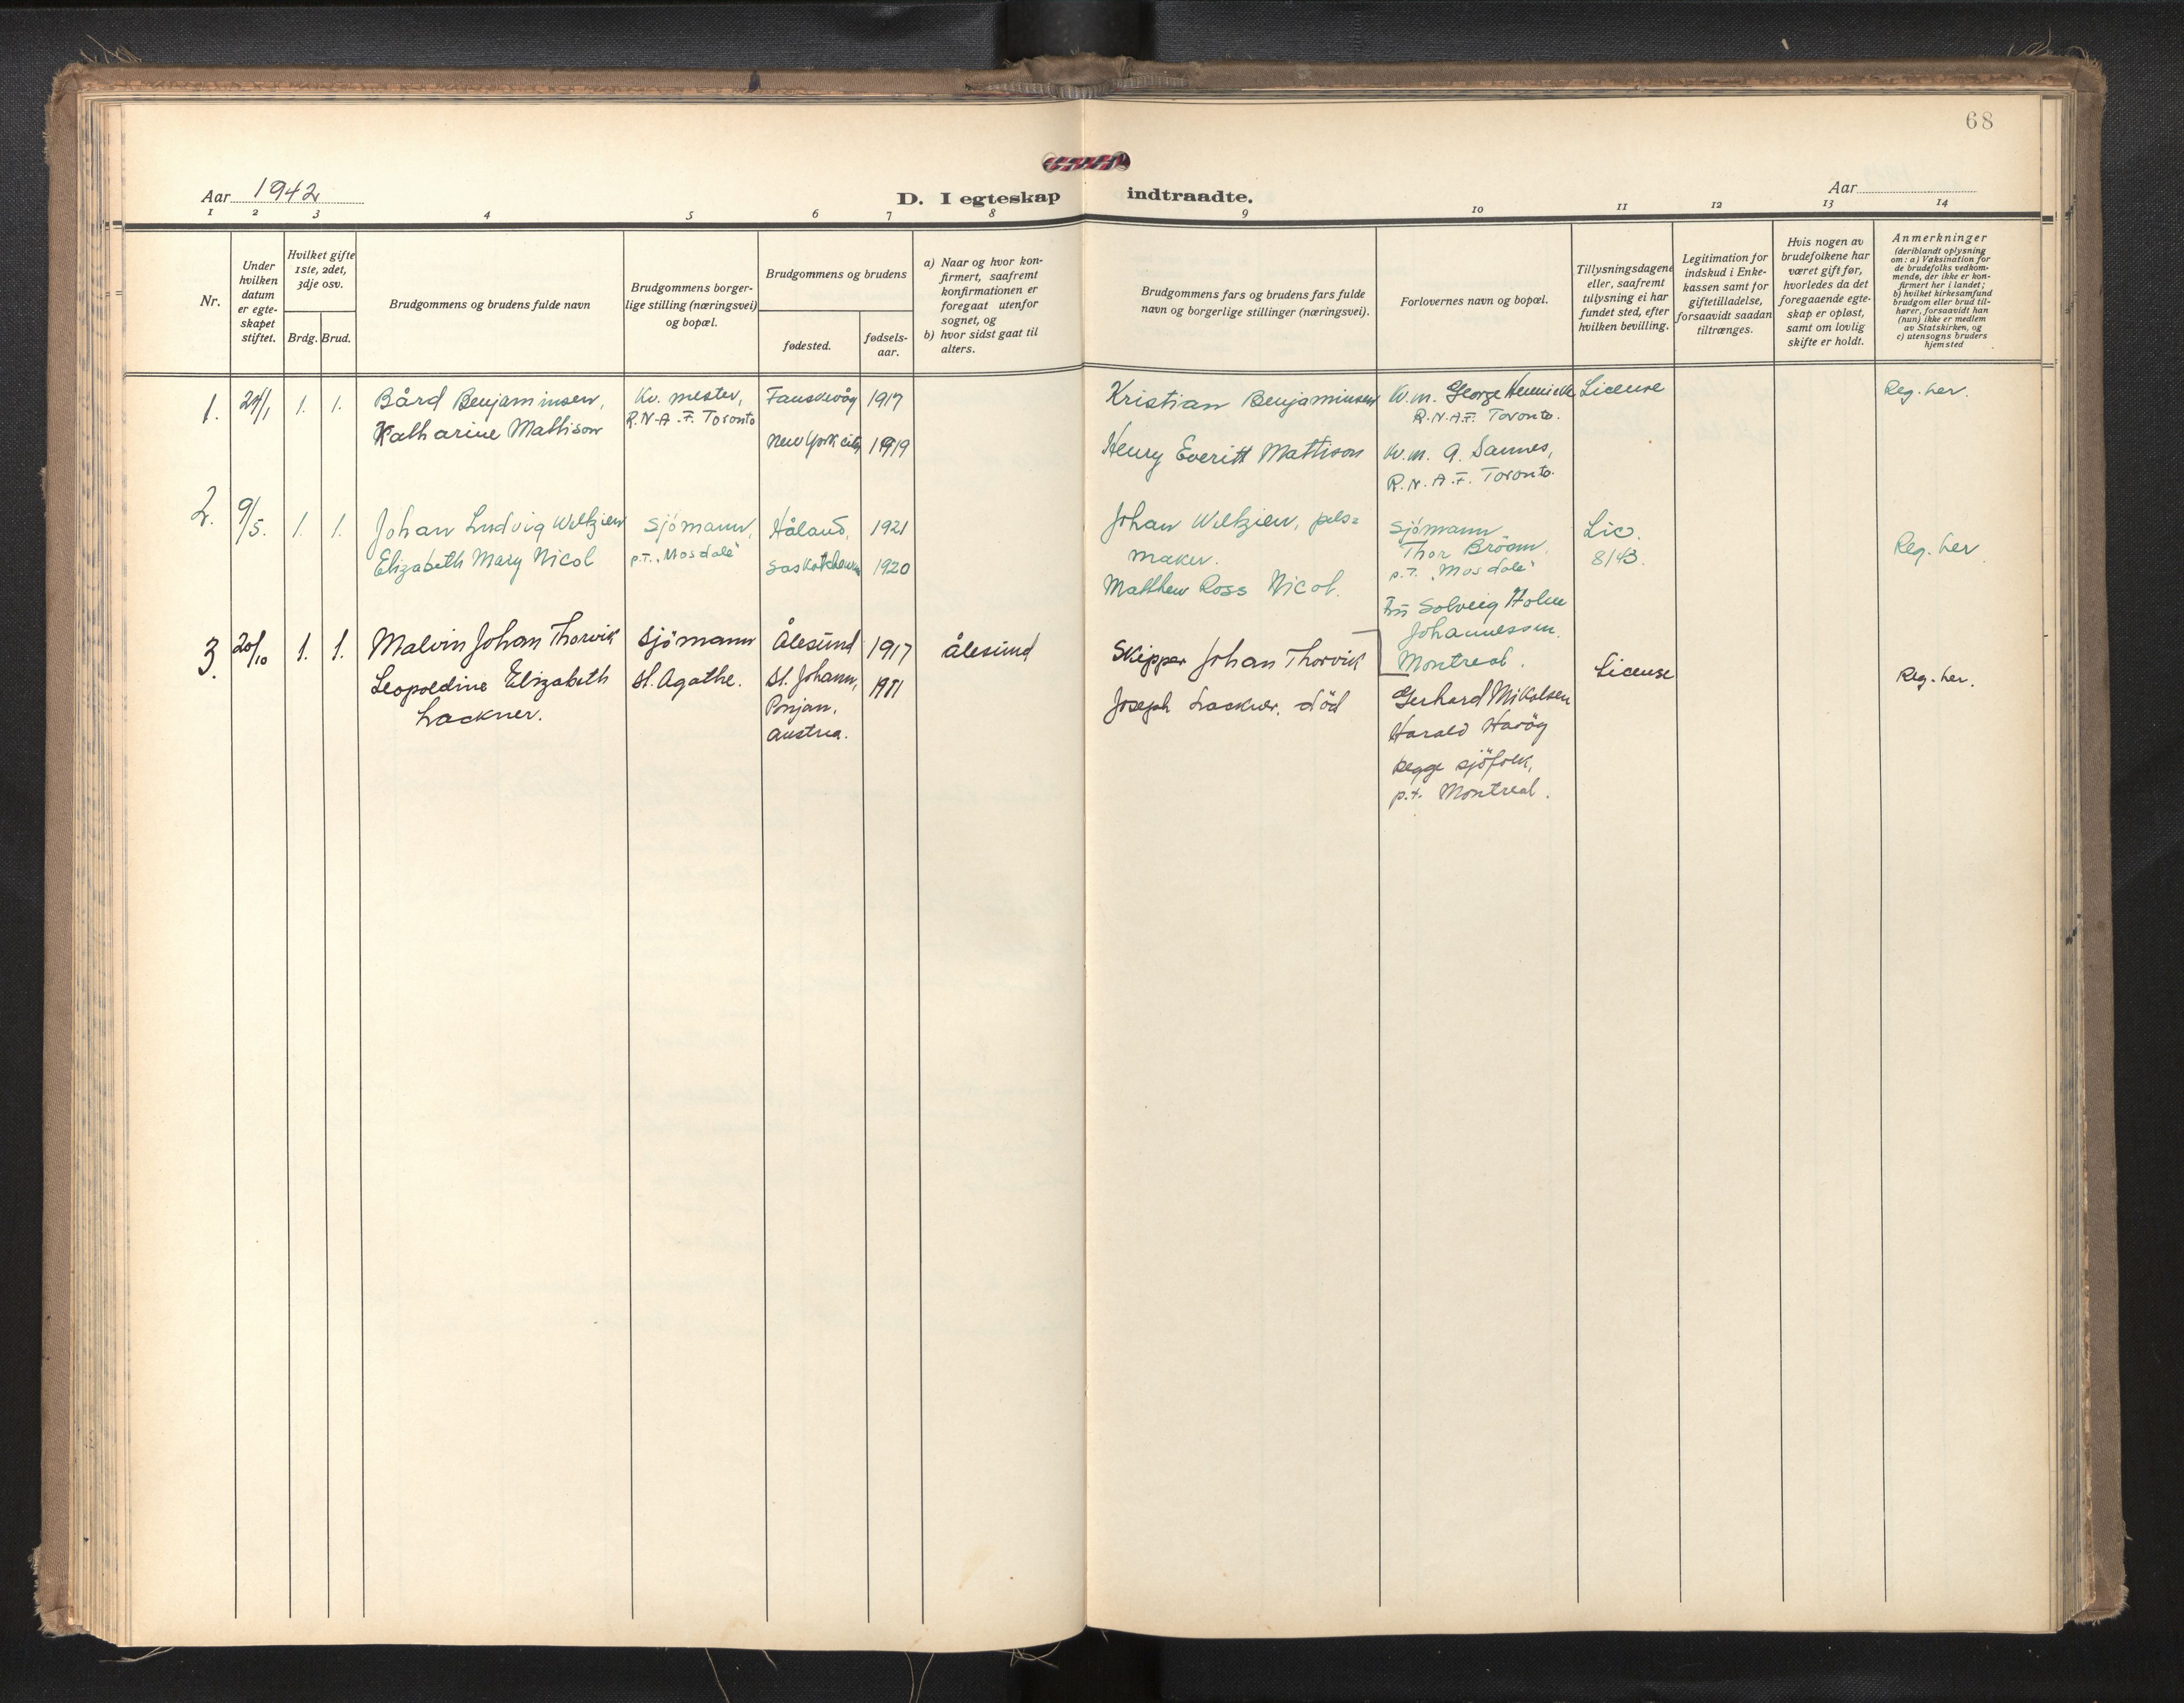 68
Aar 1942
D. I egteskap indtraadte.
Aar
1 2 3 4 5 6 7 8 9 10 11 12 13 14
Nr.
Under
hvilken
datum
er egte-
skapet
stiftet.
Hvilket gifte
1ste, 2det,
3dje osv.
Brdg. Brud.
Brudgommens og brudens fulde navn
Brudgommens borger-
lige stilling (næringsvei)
og bopæl.
Brudgommens og brudens
fødested.
fødsels-
aar.
a) Naar og hvor kon-
firmert, saafremt
konfirmationen er
foregaat utenfor
sognet, og
b) hvor sidst gaat til
alters.
Brudgommens fars og brudens fars fulde
navn og borgerlige stillinger (næringsvei).
Forlovernes navn og bopæl.
Tillysningsdagene
eller, saafremt
tillysning ei har
fundet sted, efter
hvilken bevilling.
Legitimation for
indskud i Enke-
kassen samt for
giftetilladelse,
forsaavidt saadan
tiltrænges.
Hvis nogen av
brudefolkene har
været gift før,
hvorledes da det
foregaaende egte-
skap er opløst,
samt om lovlig
skifte er holdt.
Anmerkninger
(deriblandt oplysning
om: a) Vaksination for
de brudefolks vedkom-
mende, der ikke er kon-
firmert her i landet;
b) hvilket kirkesamfund
brudgom eller brud til-
hører, forsaavidt han
(hun) ikke er medlem
av Statskirken, og
c) utensogns bruders
hjemsted
1. 24/1 1. 1.
Bård Benjaminsen,
Katharine Mathison
Kv. mester,
R.N.A.F. Toronto
Fauskevåg 1917
New York city 1919
Kristian Benjaminsen
Henry Everitt Mattison
Kv.m. George
R.N.A.F. Toronto.
Kv.m. A. Sannes,
R.N.A.F. Toronto.
License
Reg. her.
2. 9/5. 1. 1.
Johan Ludvig Weltzien
Elizabeth Mary Nicol
Sjömann,
p.t. "Mosdale"
Håland, 1921
Saskatchewan 1920
Johan Weltzien, pels=
maker.
Matthew Ross Nicol.
Sjömann
Thor
p.t. "Mosdale"
Fru Solveig Holm
Johannessen.
Montreal.
Lic.
8143.
Reg. her
3. 20/10 1. 1.
Malvin Johan Thorvik
Leopoldine Elizabeth
Lackner.
Sjömann
St. Agathe.
Ålesund 1917
St. Johann, 1911
Ponjan,
Austria.
Ålesund
Skipper Johan Thorvik
Joseph Lackner. död
Gerhard Mikalsen
Harald
begge sjöfolk,
p.t. Montreal.
License
Reg. her.